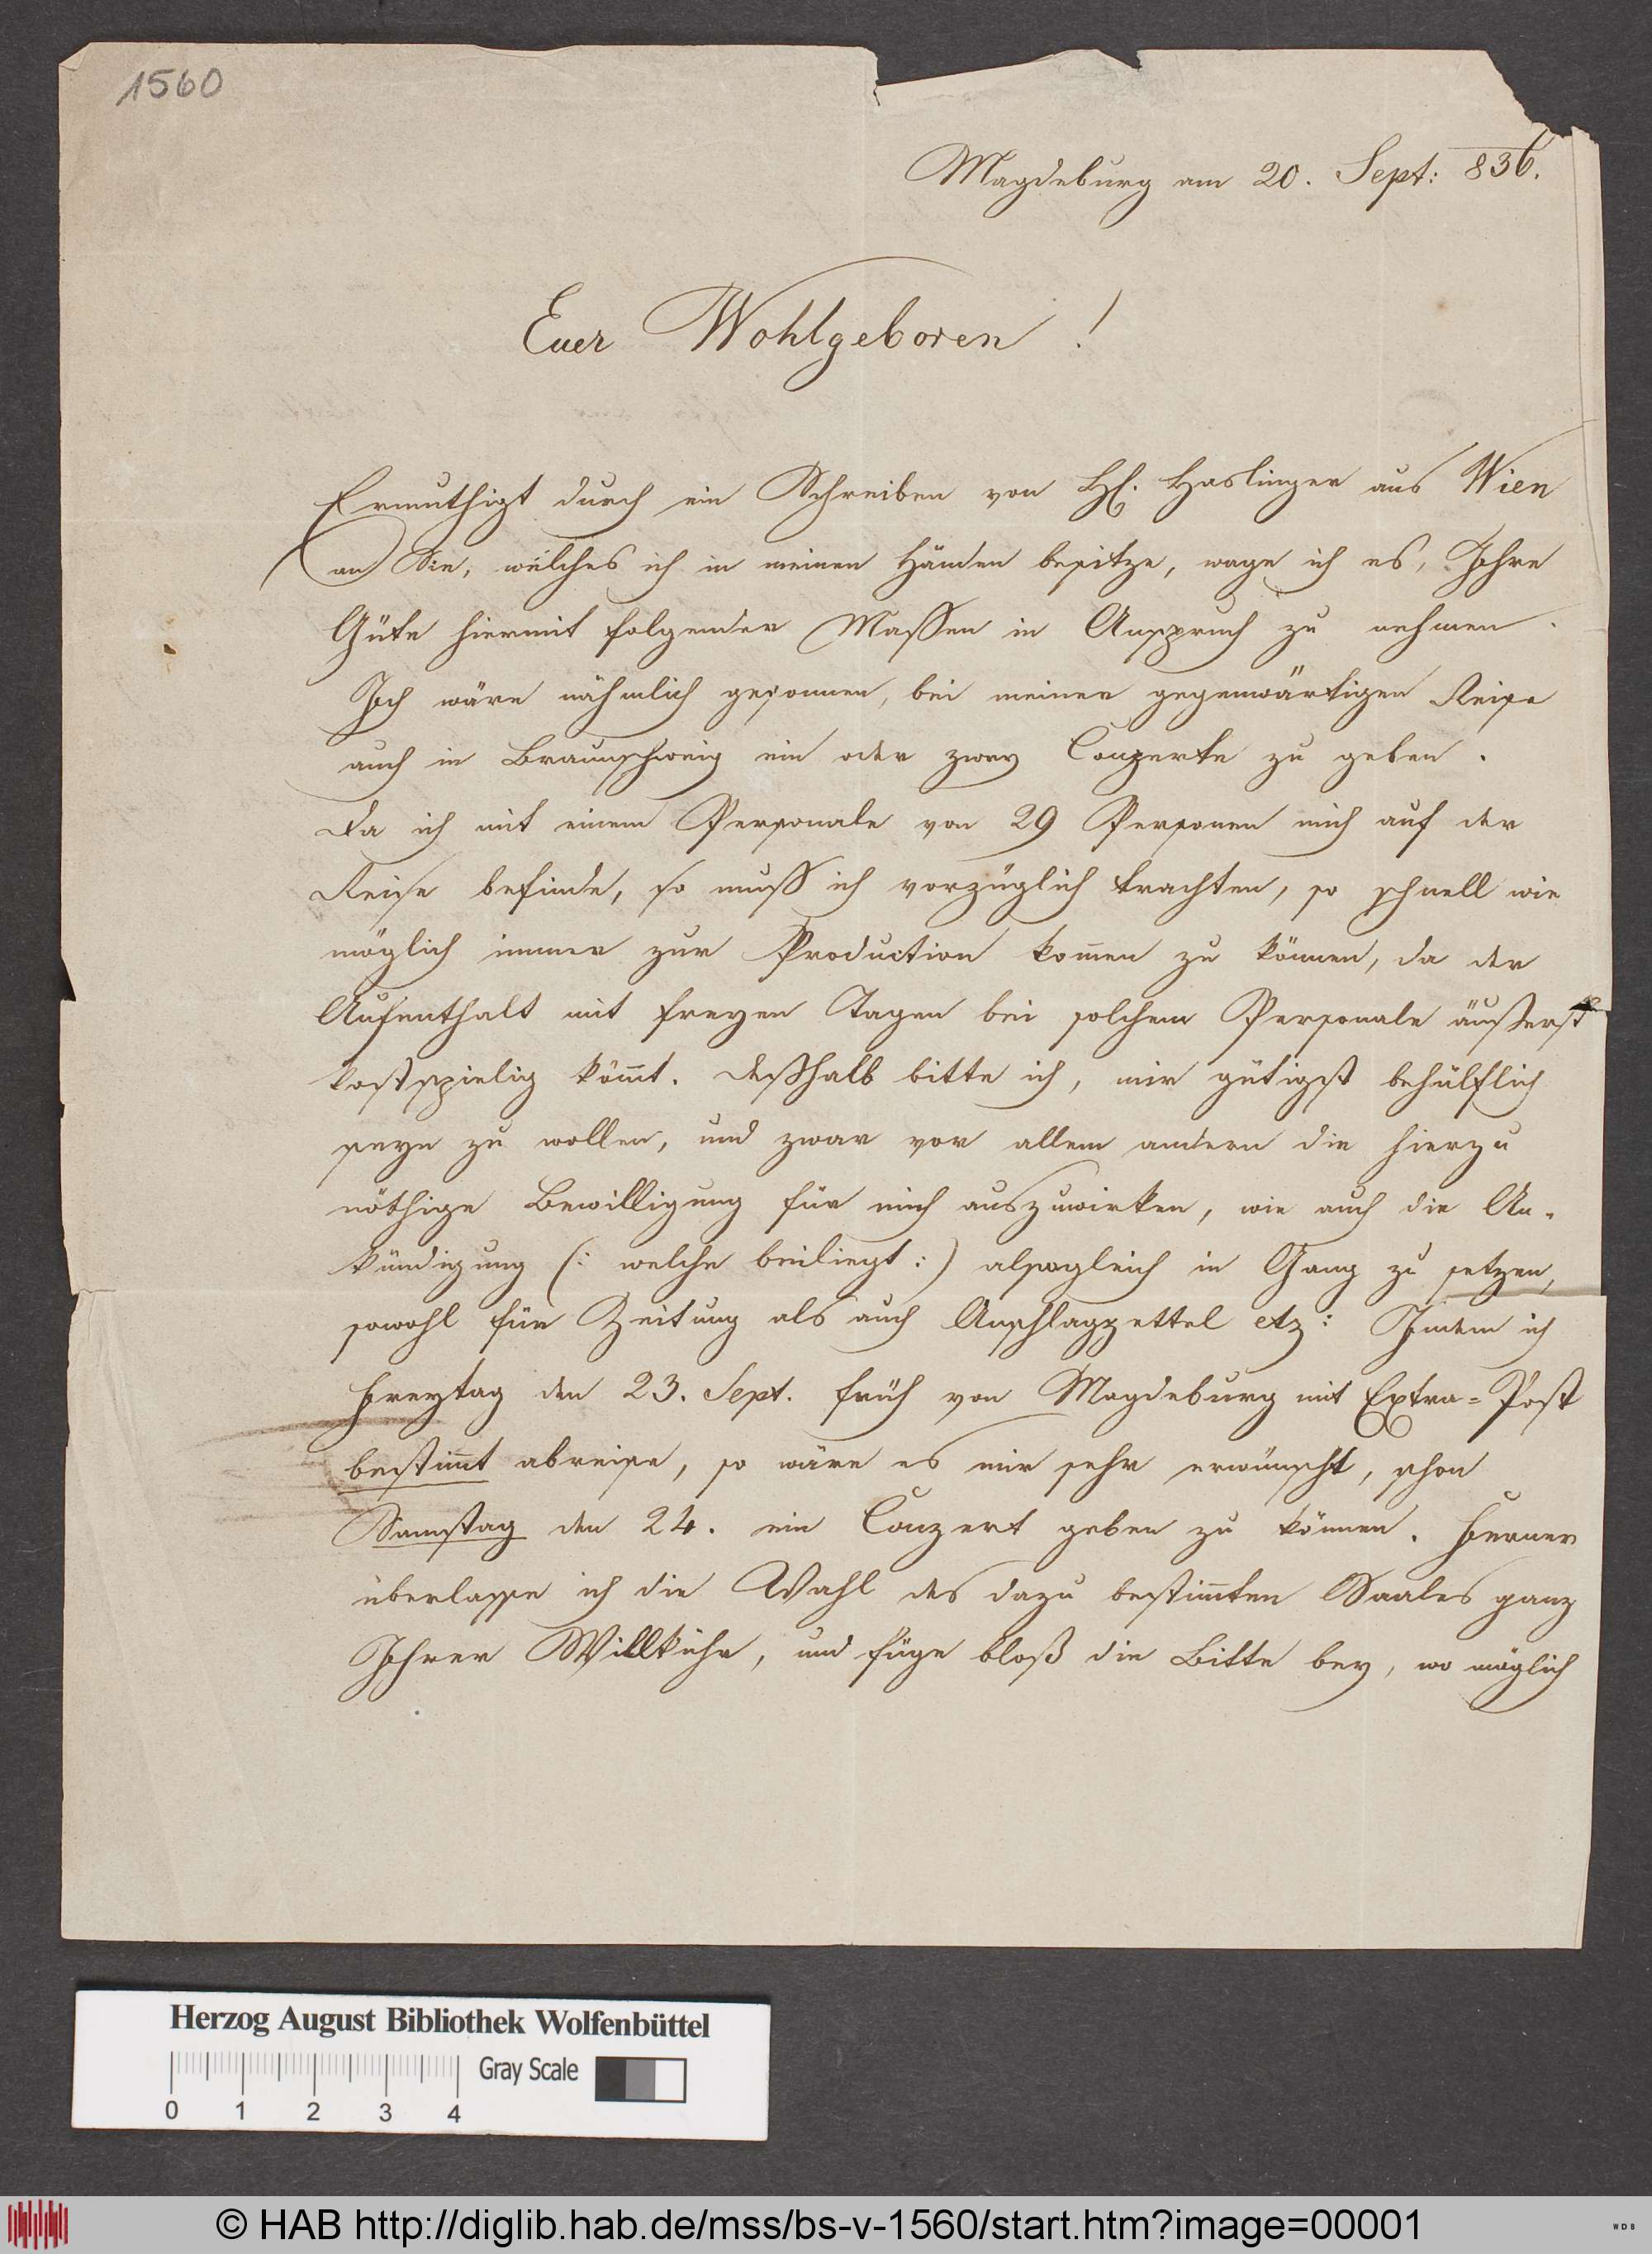 1560
Magdeburg am 20. Sept: 836.
Euer Wohlgeboren!
Ermuthigt durch ein Schreiben von H. Haslinger aus Wien
an Sie, welches ich in meinen Händen besitze, wage ich es, Ihre
Güte hiermit folgender Massen in Anspruch zu nehmen.
Ich wäre nähmlich gesonnen, bei meiner gegenwärtigen Reise
auch in Braunschweig ein oder zwey Conzerte zu geben.
Da ich mit einem Personale von 29 Personen mich auf der
Reise befinde, so muss ich vorzüglich trachten, so schnell wie
möglich immer zur Production kom̄en zu können, da der
Aufenthalt mit freyen Tagen bei solchem Personale äußerst
kostspielig köm̄t. Deßhalb bitte ich, mir gütigst behülflich
seyn zu wollen, und zwar vor allem andern die hierzu
nöthige Bewilligung für mich auszuwirken, wie auch die An-
kündigung (: welche beiliegt :) alsogleich in Gang zu setzen,
sowohl für Zeitung als auch Anschlagzettel etz: Indem ich
Freytag den 23. Sept. früh von Magdeburg mit Extra=Post
bestim̄t abreise, so wäre es mir sehr erwünscht, schon
Samstag den 24. ein Conzert geben zu können. Ferner
überlasse ich die Wahl des dazu bestim̄ten Saales ganz
Ihrer Willkühr, und füge bloß die Bitte bey, wo möglich
Herzog August Bibliothek Wolfenbüttel
Gray Scale
0 1 2 3 4
© HAB http://diglib.hab.de/mss/bs-v-1560/start.htm?image=00001
WDB